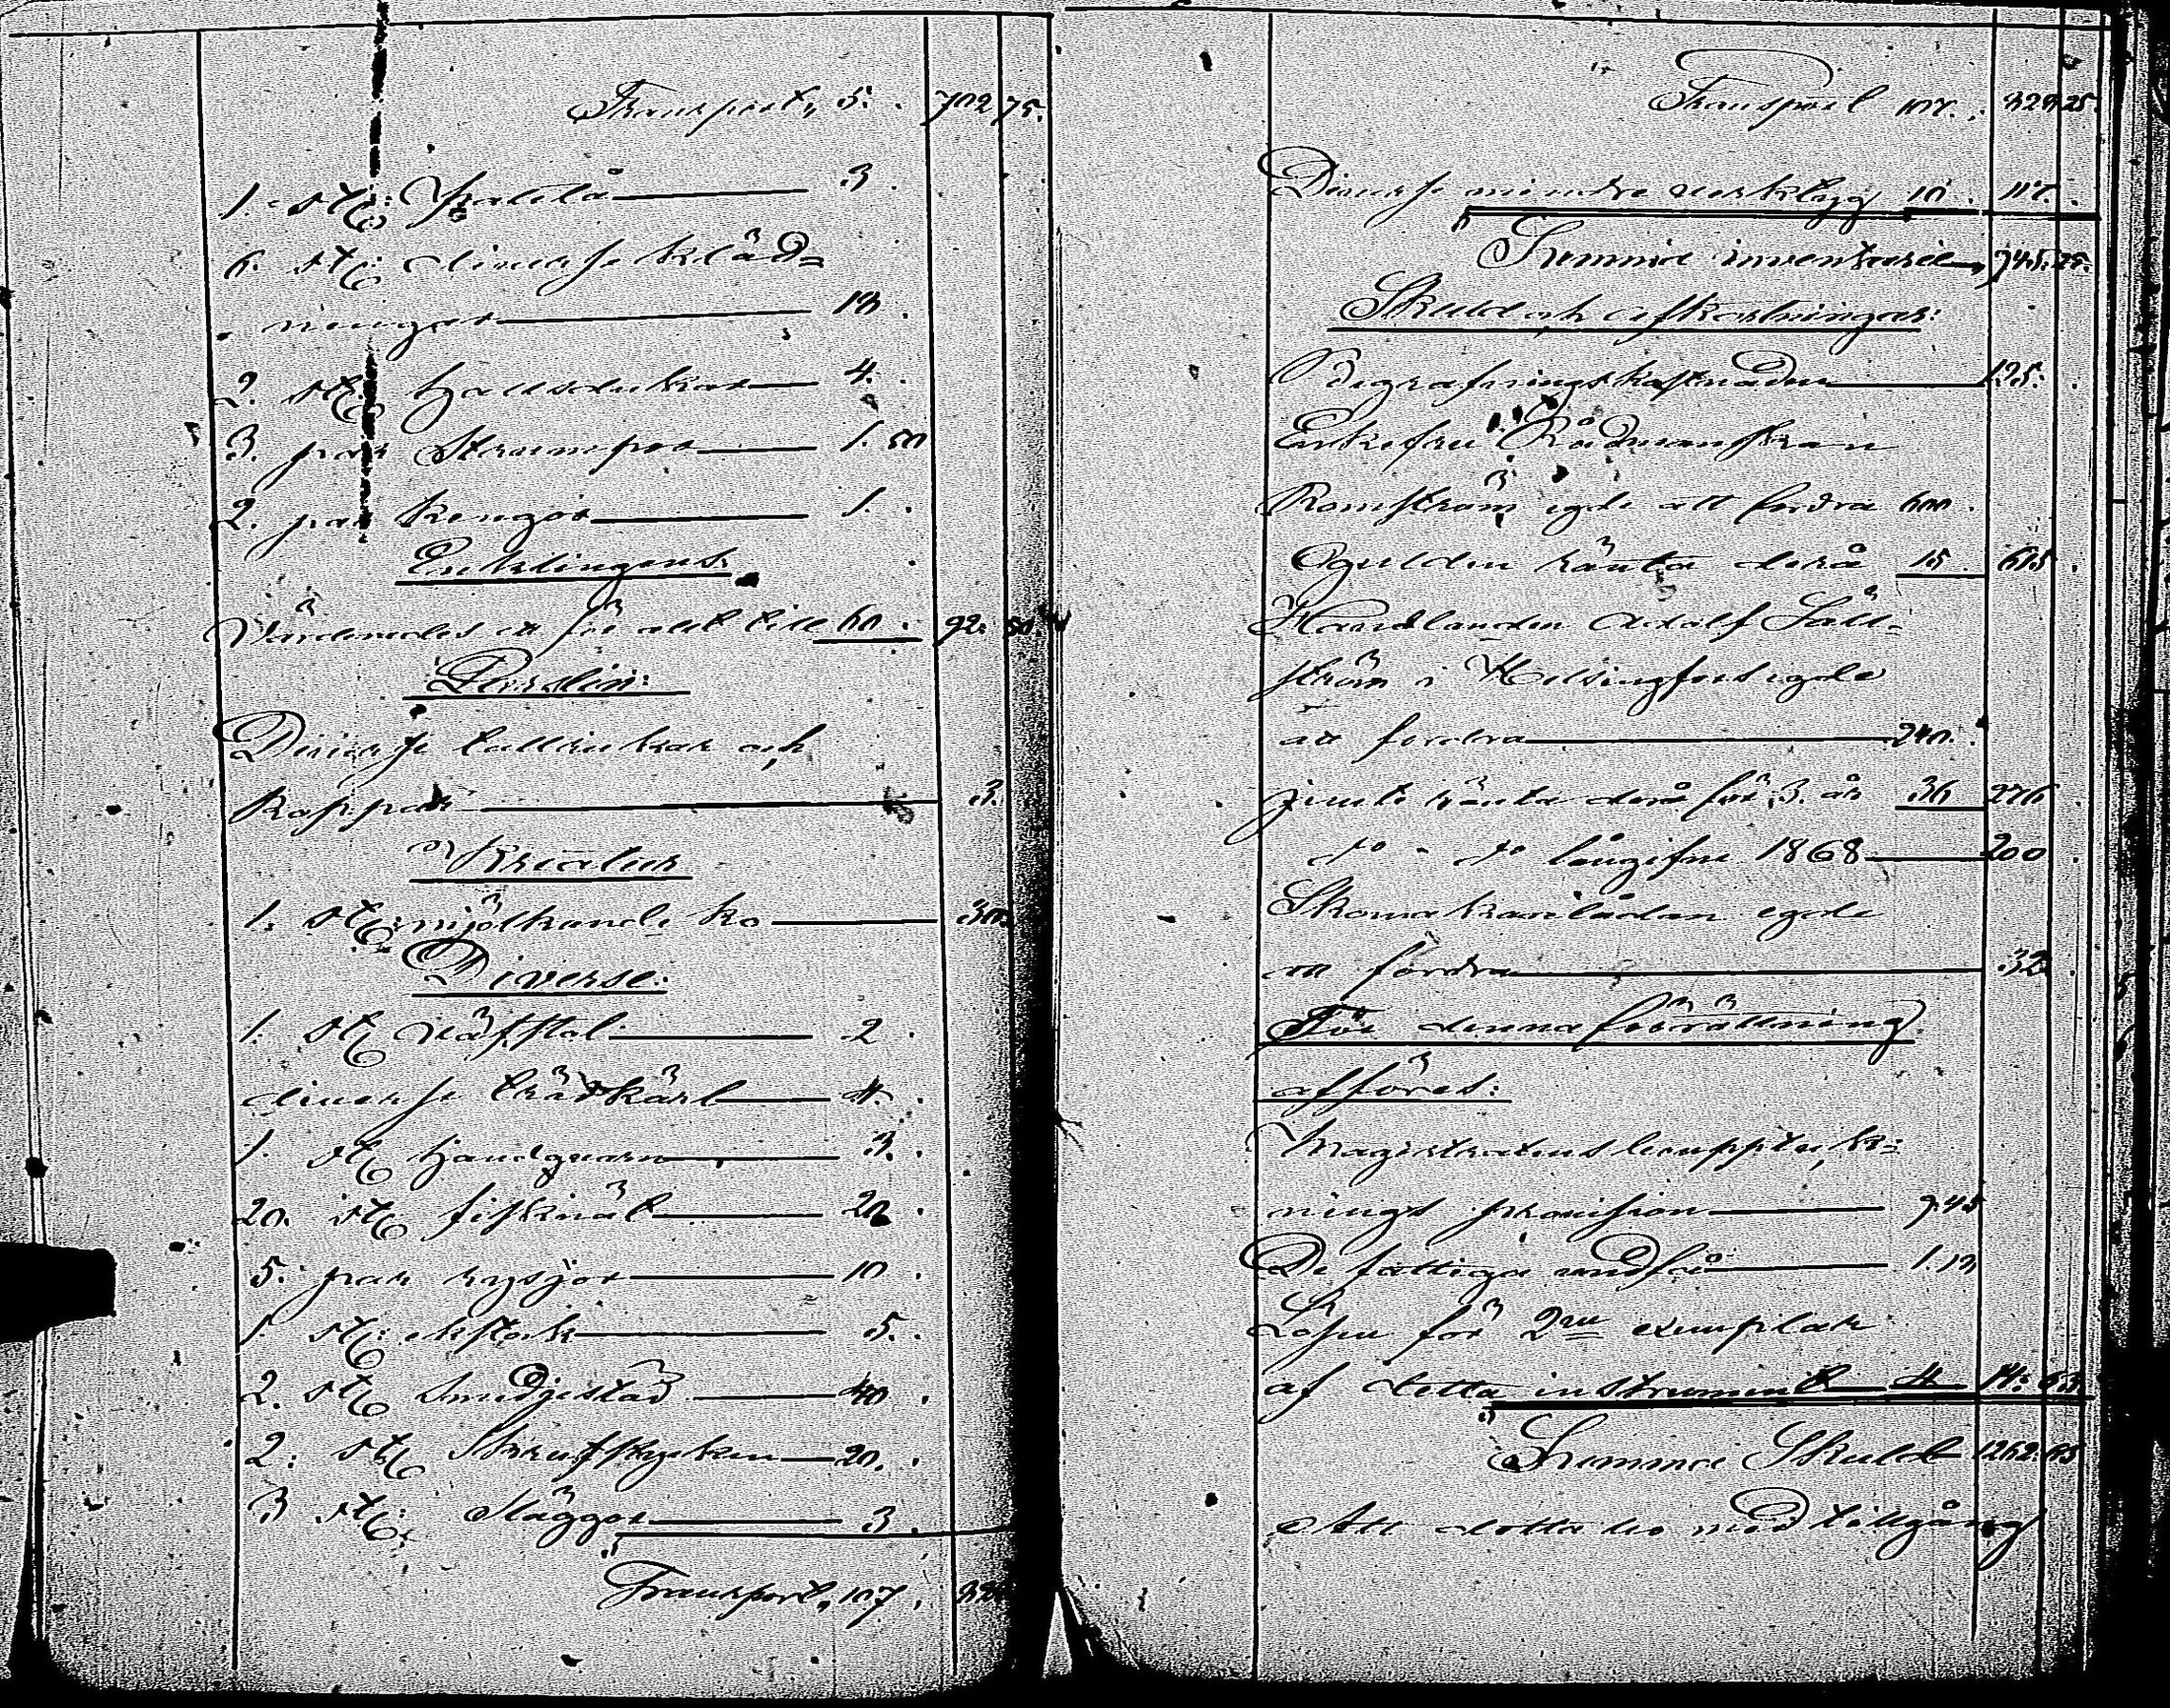 Transport, 5. . 702 75.
1. st: Paletå 3 .
6. st: diverse kläd=
ningar 18 .
2. st: halsdukar 4. .
3. par Strumpor 1. 50
2. par kengor 1. .
Enklingens
Värderades et för alt till 60 . 92. 50.
Porslin:
Diverse tallrickar och
koppar 3.
Kreatur
1. st: mjölkande ko 30.
Diverse:
1. st väfstol 2 .
diverse trädkärl 4. .
1. st handqvarn 3. .
20. st fisknät 20 .
5. par ryssjor 10 .
1. st: ekstock 5. .
2. st Smidjestäd 40 .
2. st Skrufstycken 20. .
3 st: släggor 3 .
Transport, 107 .
Transport 107. . 828 25.
Diverse mindre verktyg 10 . 117. .
Summa inventarie, 945. 25.
Skuld och afkortningar:
Begrafningskostnaden 125. .
Enkefru Rådmanskan
Romström egde att fordra 600 .
Ogulden ränta derå 15 615 .
Handlanden Adolf Säll-
ström i Helsingfors egde
att fordra 240. .
jemte ränta derå för 3. år 36 276 .
do - do långifne 1868 200 .
Skomakarelådan egde
att fordra 32 .
För denna förrättning
afföres:
Magistratens bouppteck=
nings provision 9.45
De fattiga undfå 1.18
Lösen för 2ne exemplar
af detta instrument 4 14. 63
Summa Skuld 1262. 63
Att detta bo med tillgång